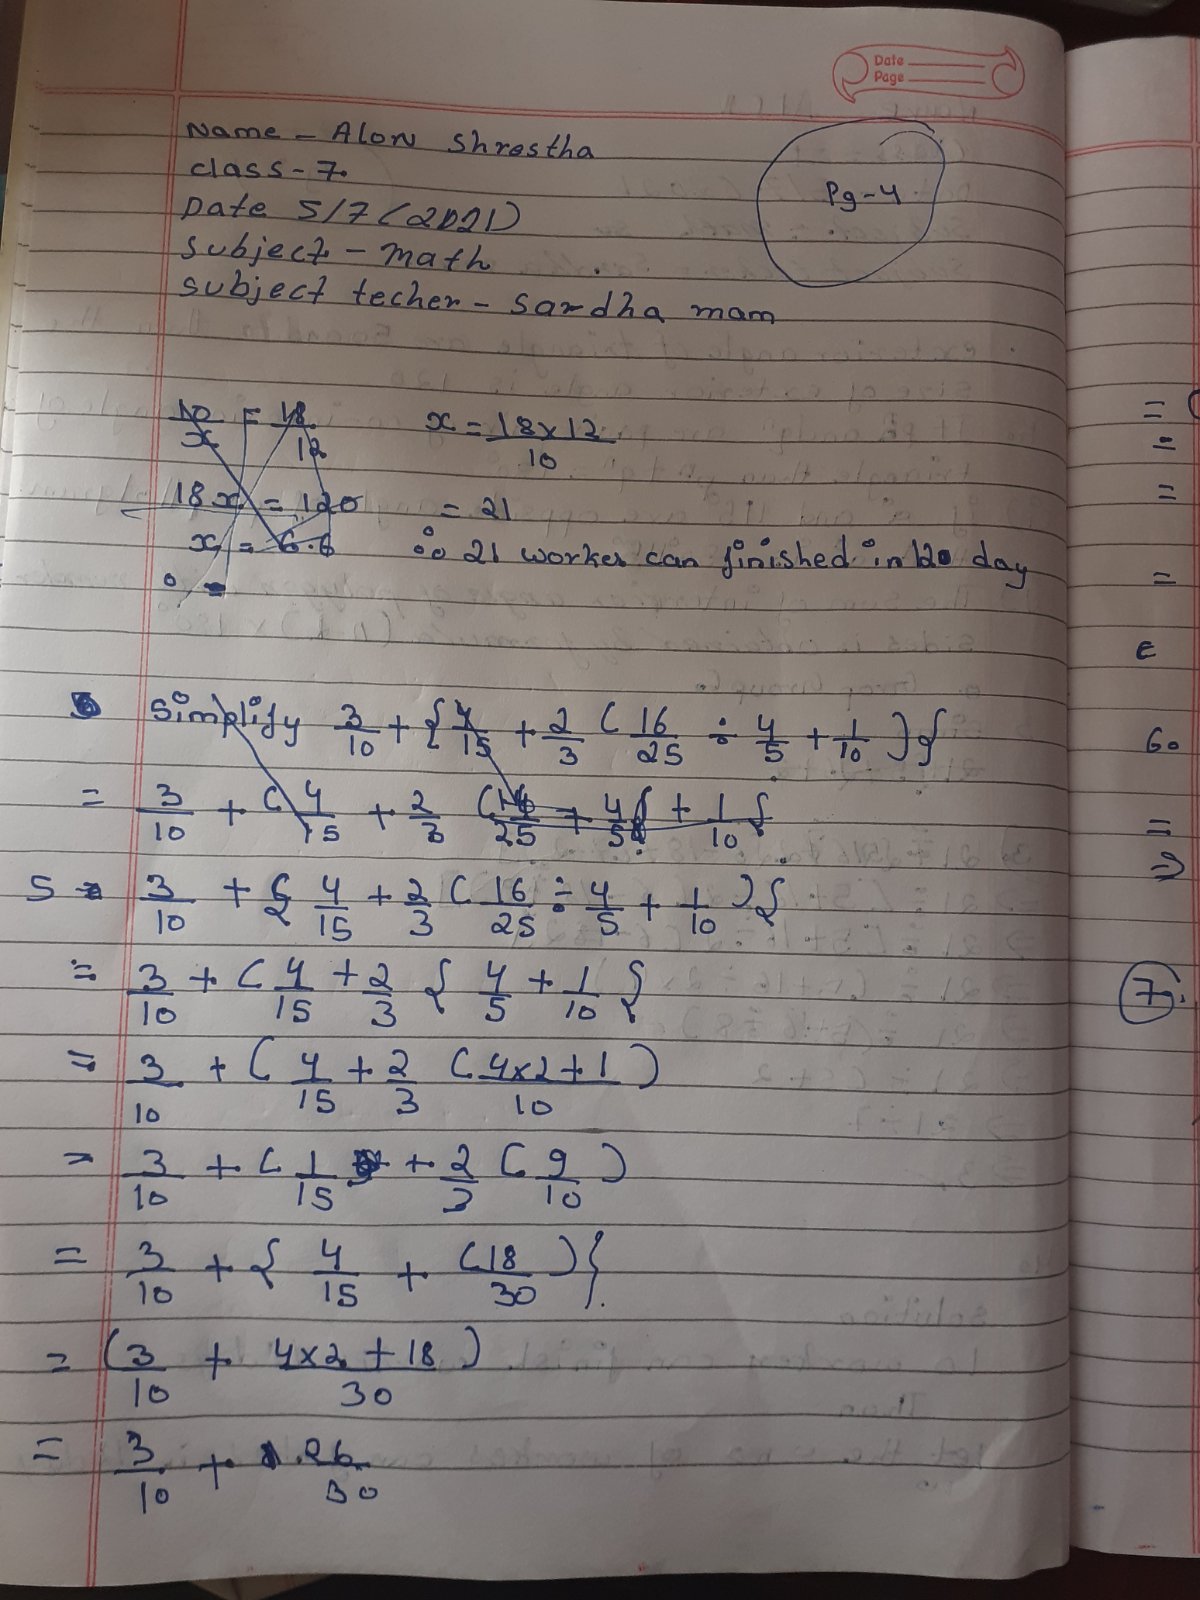 Date
Page
Name - Alon Shrestha
class - 7.
Date 5/7 (2021)
Pg - 4
subject - math
subject techer - sardha mam
10/x = 18/12
x = 18×12/10
18x = 120
= 21
x = 6.6
∴ 21 worker can finished in 120 day
Simplify 3/10 + { 4/15 + 2/3 ( 16/25 ÷ 4/5 + 1/10 ) {
= 3/10 + ( 4/15 + 2/3 ( 16/25 ÷ 4/5 { + 1/10 }
5 3/10 + { 4/15 + 2/3 ( 16/25 ÷ 4/5 + 1/10 ) }
= 3/10 + ( 4/15 + 2/3 { 4/5 + 1/10 }
= 3/10 + ( 4/15 + 2/3 ( 4×2+1/10 )
= 3/10 + ( 1/15 + 2/3 ( 9/10 )
= 3/10 + { 4/15 + ( 18/30 ) }
= ( 3/10 + 4×2+18/30 )
= 3/10 + 26/30
60
7.